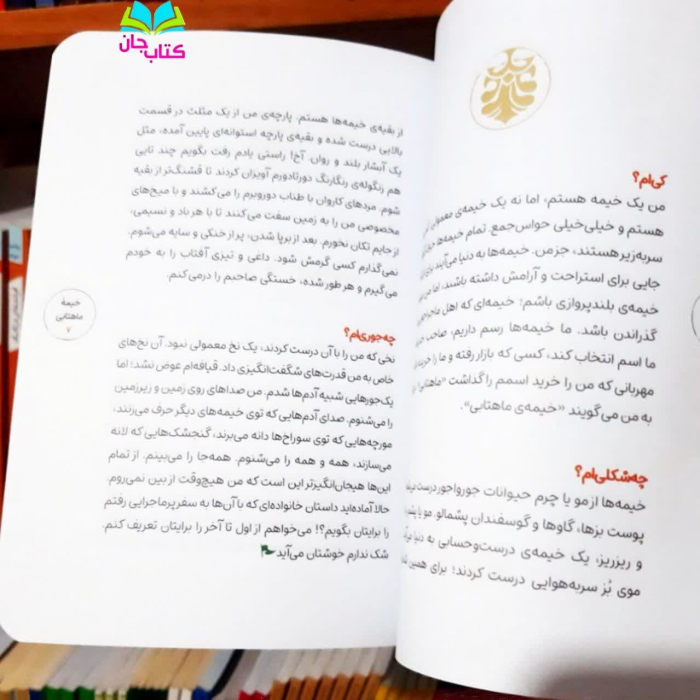 کتاب جان
کی‌ام؟
من یک خیمه هستم، اما نه یک خیمه‌ی معمولی.
هستم و خیلی‌خیلی حواس‌جمع. تمام خیمه‌ها
سربه‌زیر هستند، جز من. خیمه‌ها به دنیا می‌آیند
جایی برای استراحت و آرامش داشته باشند، اما من
خیمه‌ی بلندپروازی باشم؛ خیمه‌ای که اهل
گذراندن باشد. ما خیمه‌ها رسم داریم، صاحب
ما اسم انتخاب کند، کسی که بازار رفته و ما را خریده
مهربانی که من را خرید اسمم را گذاشت «ماهتابی»
به من می‌گویند «خیمه‌ی ماهتابی».
چه‌شکلی‌ام؟
خیمه‌ها از مو یا چرم حیوانات جورواجور درست
پوست بزها، گاوها و گوسفندان پشمالو. مو یا پشم
و ریزریز، یک خیمه‌ی درست‌وحسابی به دنیا
موی بُز سربه‌هوایی درست کردند؛ برای همین
از بقیه‌ی خیمه‌ها هستم. پارچه‌ی من از یک مثلث در قسمت
بالایی درست شده و بقیه‌ی پارچه استوانه‌ای پایین آمده، مثل
یک آبشار بلند و روان. آخ! راستی یادم رفت بگویم چند تایی
هم زنگوله‌ی رنگارنگ دورتادورم آویزان کردند تا قشنگ‌تر از بقیه
شوم. مردهای کاروان با طناب دوروبرم را می‌کشند و با میخ‌های
مخصوصی من را به زمین سفت می‌کنند تا با هر باد و نسیمی،
از جایم تکان نخورم. بعد از برپا شدن، پر از خنکی و سایه می‌شوم.
نمی‌گذارم کسی گرمش شود. داغی و تیزی آفتاب را به خودم
می‌گیرم و هر طور شده، خستگی صاحبم را درمی‌کنم.
چه‌جوری‌ام؟
نخی که من را با آن درست کردند، یک نخ معمولی نبود. آن نخ‌های
خاص به من قدرت‌های شگفت‌انگیزی داد. قیافه‌ام عوض نشد؛ اما
یک‌جورهایی شبیه آدم‌ها شدم. من صداهای روی زمین و زیرزمین
را می‌شنوم. صدای آدم‌هایی که توی خیمه‌های دیگر حرف می‌زنند،
مورچه‌هایی که توی سوراخ‌ها دانه می‌برند، گنجشک‌هایی که لانه
می‌سازند، همه و همه را می‌شنوم. همه‌جا را می‌بینم. از تمام
این‌ها هیجان‌انگیزتر این است که من هیچ‌وقت از بین نمی‌روم.
حالا آماده‌اید داستان خانواده‌ای که با آن‌ها به سفر پرماجرایی رفتم
را برایتان بگویم؟! می‌خواهم از اول تا آخر را برایتان تعریف کنم.
شک ندارم خوشتان می‌آید
خیمهٔ
ماهتابی
۷